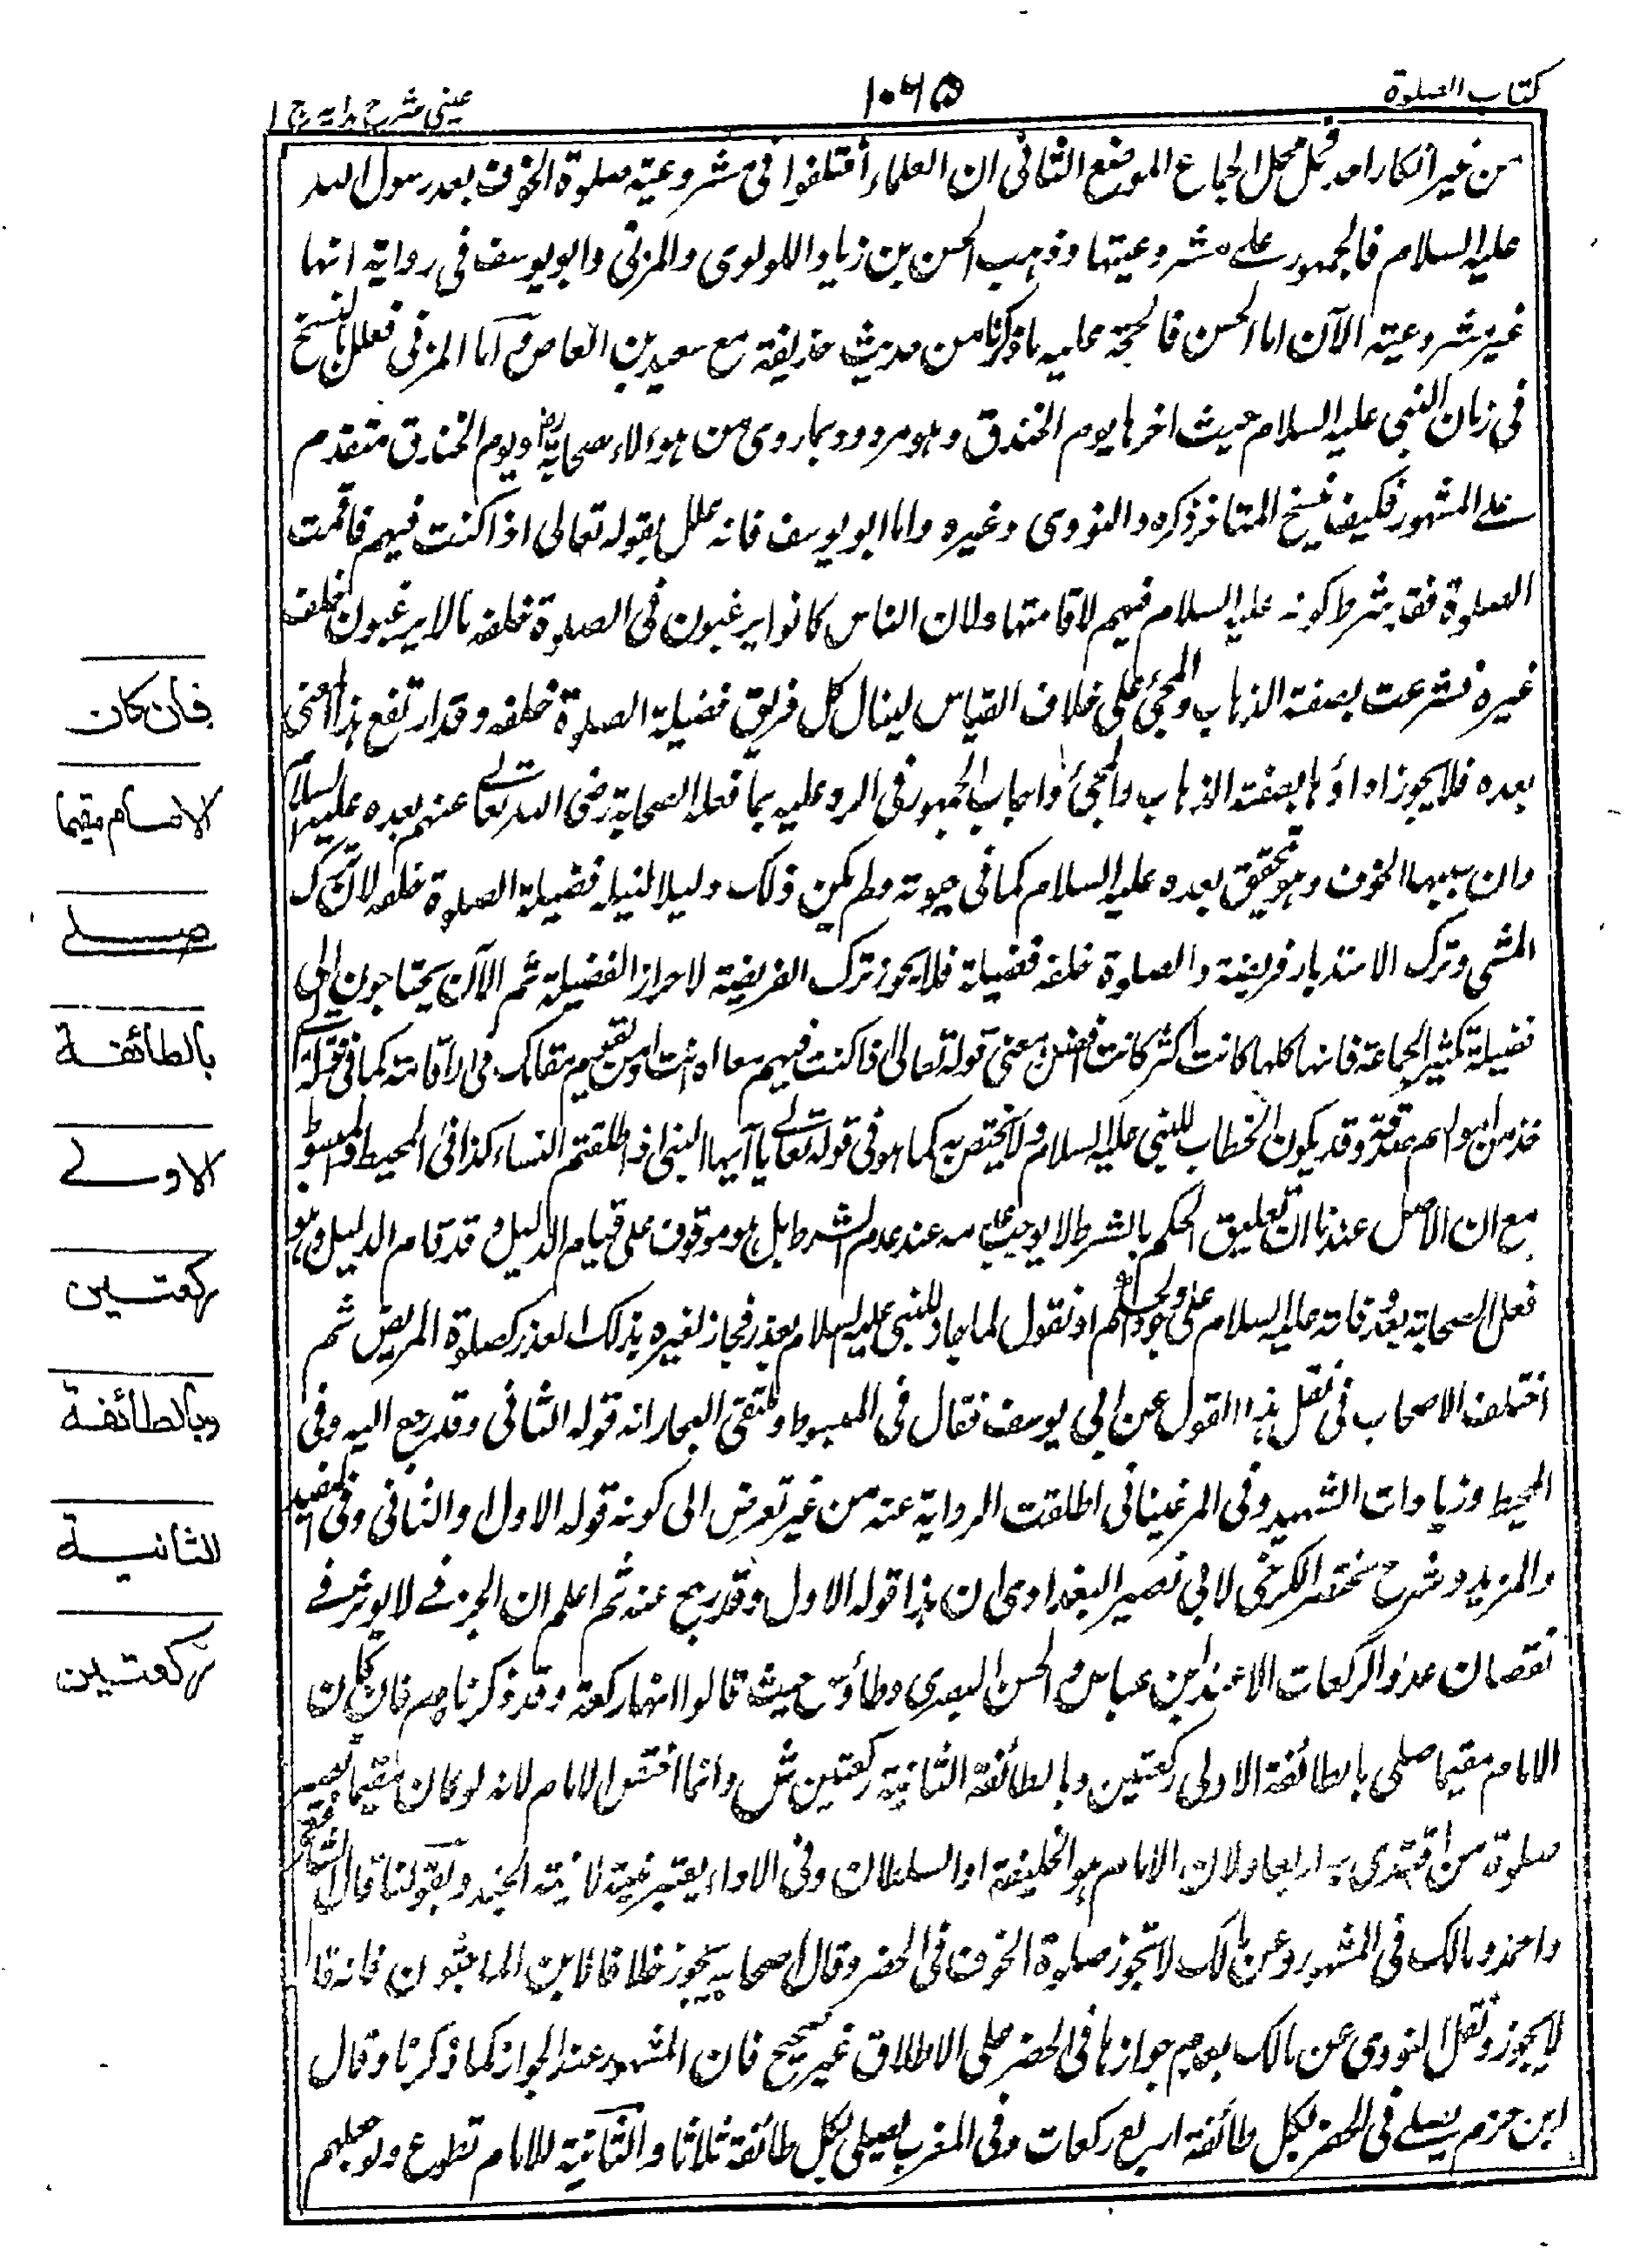 كتاب الصلوة
١٠٦٥
عینی شرح هدایه ج ١
من غير انكار احد فحل محل الاجماع الموضع الثاني ان العلماء اختلفوا في مشروعية صلوة الخوف بعد رسول الله
عليه السلام فالجمهور على مشروعيتها وذهب الحسن بن زياد اللولوى والمزنى وابو يوسف في رواية انها
غير مشروعية الآن اما الحسن فالحجة عليه ما ذكرنا من حديث حذيفة مع سعيد بن العاص واما المزنى فعلل بالنسخ
في زمان النبي عليه السلام حيث اخرها يوم الخندق وهو مردود بما روى من هؤلاء صحابة رض ويوم الخندق متقدم
على المشهور فكيف ينسخ المتاخر ذكره النووى وغيره واما ابو يوسف فانه علل بقوله تعالى اذا كنت فيهم فاقمت
الصلوة فقد شرط كونه عليه السلام فيهم لاقامتها ولان الناس كانوا يرغبون في الصلوة خلفه مالا يرغبون خلف
غيره فشرعت بصفة الذهاب والمجئ على خلاف القياس لينال كل فريق فضيلة الصلوة خلفه وقد ارتفع هذا المعنى
بعده فلا يجوز اداؤها بصفة الذهاب والمجئ واجاب الجمهور في الرد عليه بما فعله الصحابة رضى الله تعالى عنهم بعده عليه السلام
وان سببها الخوف وهو يتحقق بعده عليه السلام كما في حيوته ولم يكن ذلك دليلا لنيله فضيلة الصلوة خلفه لان ترك
المشي وترك الاستدبار فريضة والصلوة خلفه فضيلة فلا يجوز ترك الفريضة لاحراز الفضيلة ثم الآن يحتاجون الى
فضيلة تكثير الجماعة فانها كلما كانت اكثر كانت افضل ومعنى قوله تعالى اذا كنت فيهم معناه انت او من يقوم مقامك في الاقامة كما في قوله تعالى
خذ من اموالهم صدقة وقد يكون الخطاب للنبي عليه السلام ولا يختص به كما هو في قوله تعالى يا ايها النبي اذا طلقتم النساء كذا في المحيط والمبسوط
مع ان الاصل عندنا ان تعليق الحكم بالشرط لا يوجب عدمه عند عدم الشرط بل هو موقوف على قيام الدليل وقد قام الدليل وهو
فعل الصحابة بعد وفاته عليه السلام على وجود العلم او نقول لما جاز للنبي عليه السلام بعذر فجاز لغيره بذلك العذر كصلوة المريض ثم
اختلف الاصحاب في نقل هذا القول عن ابي يوسف فقال في المبسوط وملتقى البحار انه قوله الثاني وقد رجع اليه وفي
المحيط وزيادات الشهيد وفي المرغيناني اطلقت الرواية عنه من غير تعرض الى كونه قوله الاول والثاني وفي المفيد
والمزيد وشرح مختصر الكرخى لابي نصر البغدادى ان هذا قوله الاول وقد رجع عنه ثم اعلم ان الخوف لا يوثر في
نقصان عدد الركعات الا عند ابن عباس والحسن البصرى وطاؤس حيث قالوا انها ركعة وقد ذكرناه م فان كان
الامام مقيما صلى بالطائفة الاولى ركعتين وبالطائفة الثانية ركعتين ش وانما اختص الامام لانه لو كان مقيما تصير
صلوة من اقتدى به اربعا ولان الامام هو الخليفة او السلطان وفي الاداء يعتبر نيته لا نية الجند وبقولنا قال الشافعي
واحمد ومالك في المشهور وعن مالك لا تجوز صلوة الخوف في الحضر وقال اصحابه يجوز خلافا لابن الماجشون فانه قال
لا يجوز ونقل النووى عن مالك بعدم جوازها في الحضر على الاطلاق غير صحيح فان المشهور عنه الجواز كما ذكرنا وقال
ابن حزم يصلى في الحضر بكل طائفة اربع ركعات وفي المغرب يصلى بكل طائفة ثلاثا والثانية للامام تطوع ولو جعلهم
فان كان
الامام مقيما
صلى
بالطائفة
الاولى
ركعتين
وبالطائفة
الثانية
ركعتين